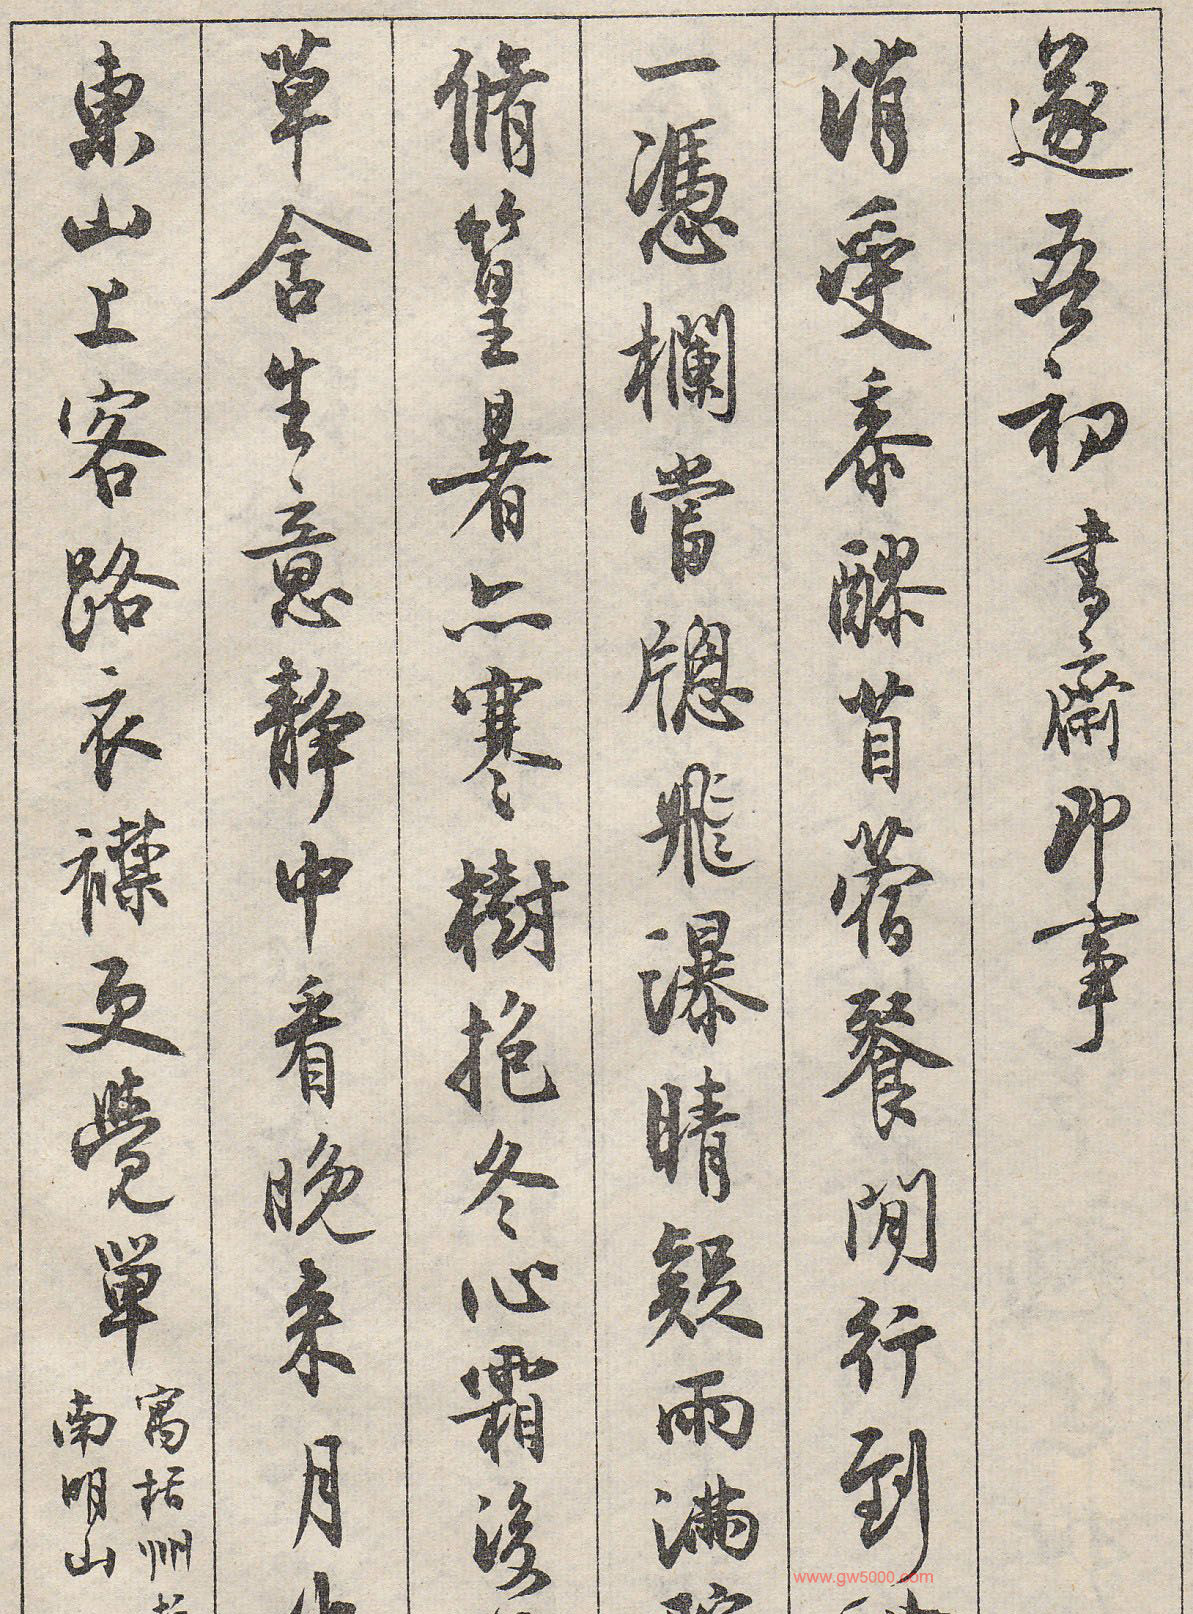 遂吾初書齋即事
消受黍醪苜蓿餐閒行到
一憑欄當牕飛瀑晴疑雨滿
脩篁暑亦寒樹抱冬心霜後
草含生意靜中看晚來月
東山上客路衣襟更覺單
寓括州
南明山
www.gw5000.com